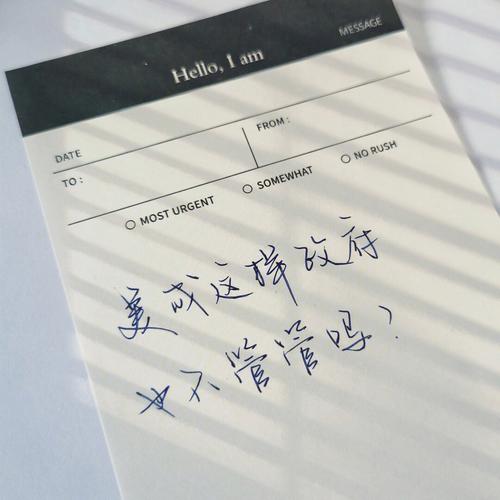 MESSAGE
Hello, I am
DATE
FROM :
TO :
MOST URGENT
SOMEWHAT
NO RUSH
美成这样政府
也不管管吗?